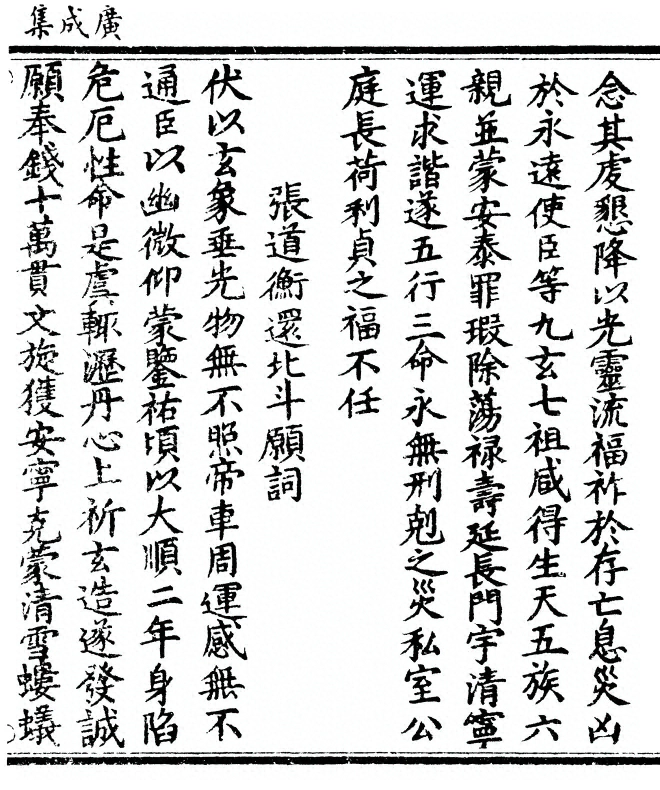 廣成集
念其虔懇降以光靈流福祚於存亡息災凶
於永遠使臣等九玄七祖咸得生天五族六
親並蒙安泰罪瑕除蕩禄壽延長門宇清寧
運求諧遂五行三命永無刑剋之災私室公
庭長荷利貞之福不任
張道衡還北斗願詞
伏以玄象垂光物無不照帝車周運感無不
通臣以幽微仰蒙鑒祐頃以大順二年身陷
危厄性命是虞輒瀝丹心上祈玄造遂發誠
願奉錢十萬貫文旋獲安寧克蒙清雪螻蟻